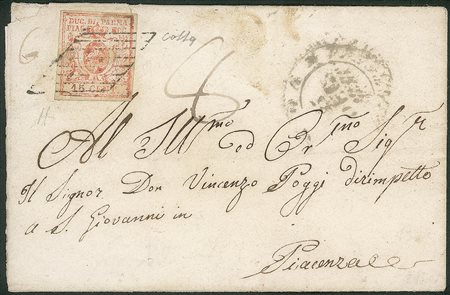 DUC. DI PARMA
PIAC. ECC.
15 CENT
Colla
8
Al Ill.mo ed Or.mo Sig.r
Il Signor Don Vincenzo Poggi dirimpetto
a S. Giovanni in
Piacenza